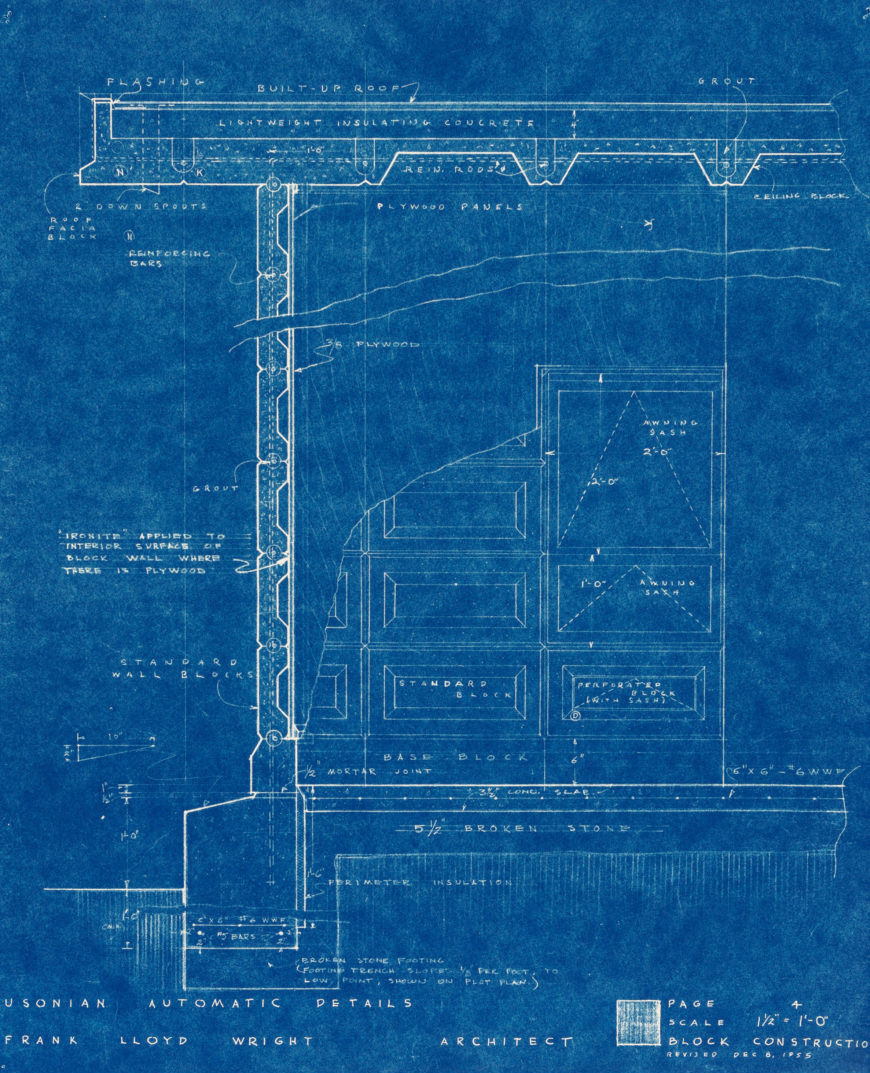 FLASHING
BUILT-UP ROOF
GROUT
LIGHTWEIGHT INSULATING CONCRETE
1'-6"
REIN. RODS
N
K
2 DOWN SPOUTS
PLYWOOD PANELS
CEILING BLOCK
ROOF
FACIA
BLOCK
N
REINFORCING
BARS
3/8 PLYWOOD
AWNING
SASH
2'-0"
2'-0"
GROUT
"IRONITE" APPLIED TO
INTERIOR SURFACE OF
BLOCK WALL WHERE
THERE IS PLYWOOD
1'-0"
AWNING
SASH
STANDARD
WALL BLOCKS
STANDARD
BLOCK
PERFORATED
BLOCK
(WITH SASH)
10"
BASE BLOCK
6"
1/2" MORTAR JOINT
6"X 6" - #6 WWF
3 1/2" CONC. SLAB
1'-0"
5 1/2" BROKEN STONE
1'-6"
PERIMETER INSULATION
1'-0"
6"X6" #6 WWF
BARS
BROKEN STONE FOOTING
(FOOTING TRENCH SLOPE 1/8 PER FOOT, TO
LOW POINT, SHOWN ON PLOT PLAN.)
USONIAN AUTOMATIC DETAILS
FRANK LLOYD WRIGHT ARCHITECT
PAGE 4
SCALE 1 1/2" = 1'-0"
BLOCK CONSTRUCTIO
REVISED DEC 8, 1955